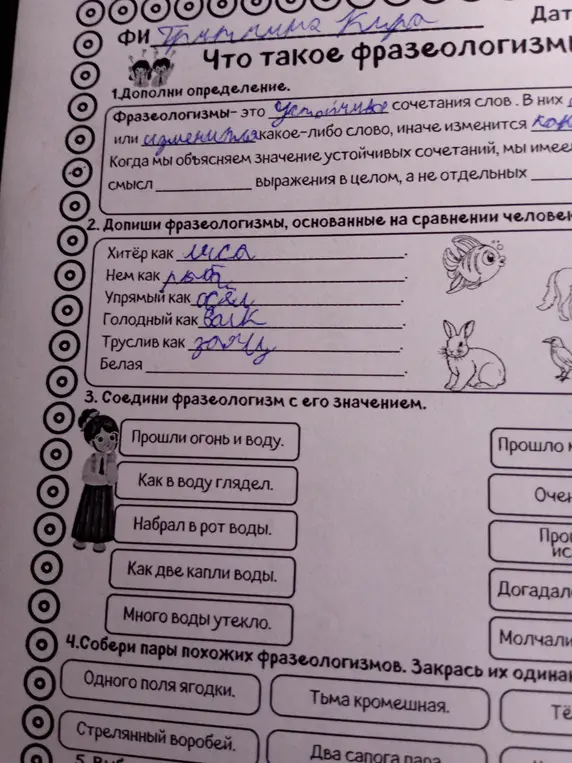 ФИ Кира
Дат
Что такое фразеологизм
1.Дополни определение.
Фразеологизмы- это устойчивое сочетания слов . В них
или какое-либо слово, иначе изменится
Когда мы объясняем значение устойчивых сочетаний, мы имее
смысл ____________ выражения в целом, а не отдельных
2. Допиши фразеологизмы, основанные на сравнении человек
Хитёр как лиса
Нем как рыба
Упрямый как осёл
Голодный как волк
Труслив как заяц
Белая
3. Соедини фразеологизм с его значением.
Прошли огонь и воду.
Прошло
Как в воду глядел.
Очен
Набрал в рот воды.
Про
ис
Как две капли воды.
Догадал
Много воды утекло.
Молчали
4.Собери пары похожих фразеологизмов. Закрась их одина
Одного поля ягодки.
Тьма кромешная.
Тё
Стрелянный воробей.
Два сапога пара